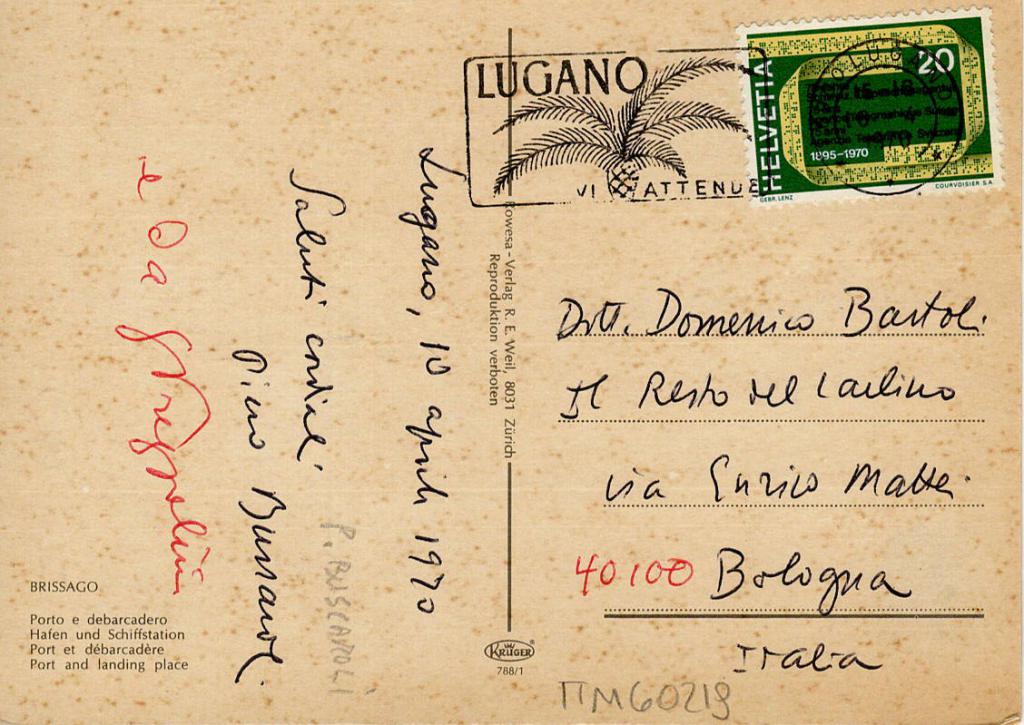 LUGANO
VI ATTENDE
HELVETIA
20
1895-1970
GEBR. LENZ
COURVOISIER S.A.
Lugano, 10 aprile 1970
Saluti cordiali
Pino Buscaroli
e da
P. BUSCAROLI
Rowesa-Verlag R. E. Weil, 8031 Zürich
Reproduktion verboten
Dott. Domenico Bartoli
Il Resto del Carlino
via Enrico Mattei
40100 Bologna
Italia
BRISSAGO
Porto e debarcadero
Hafen und Schiffstation
Port et débarcadère
Port and landing place
KRÜGER
788/1
TTM60219